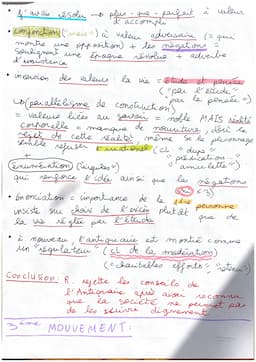 "J'avais résolu" → plus-que-parfait à valeur d'accompli
• conjonction ("mais") à valeur adversative (= qui
montre une opposition) + les négations =
soulignent une époque révolue + adverbe
d'insistance
• inversion des valeurs la vie = étude et pensée
("par l'étude",
par la pensée")
↳ (parallélisme de construction)
= valeurs liées au savoir = noble MAIS réalité
corporelle = manque de nourriture, doit la
de cette réalité, même si le personnage
semble refuser l'
"prédication"
"amulette")
+
énumération ("argutes")
qui renforce l'idée ainsi que les négations
(x3)
• énonciation = importance de la 1ère personne
insiste sur choix de l'excès plutôt que de
la vie réglée par l'étude
• à nouveau l'antiquaire est montré comme
un "régulateur" (cf. de la modération)
("charitables efforts",
Conclusion: R. rejette les conseils de
l'Antiquaire
que la société ne permet pas
de les suivre dignement.
3ème MOUVEMENT: